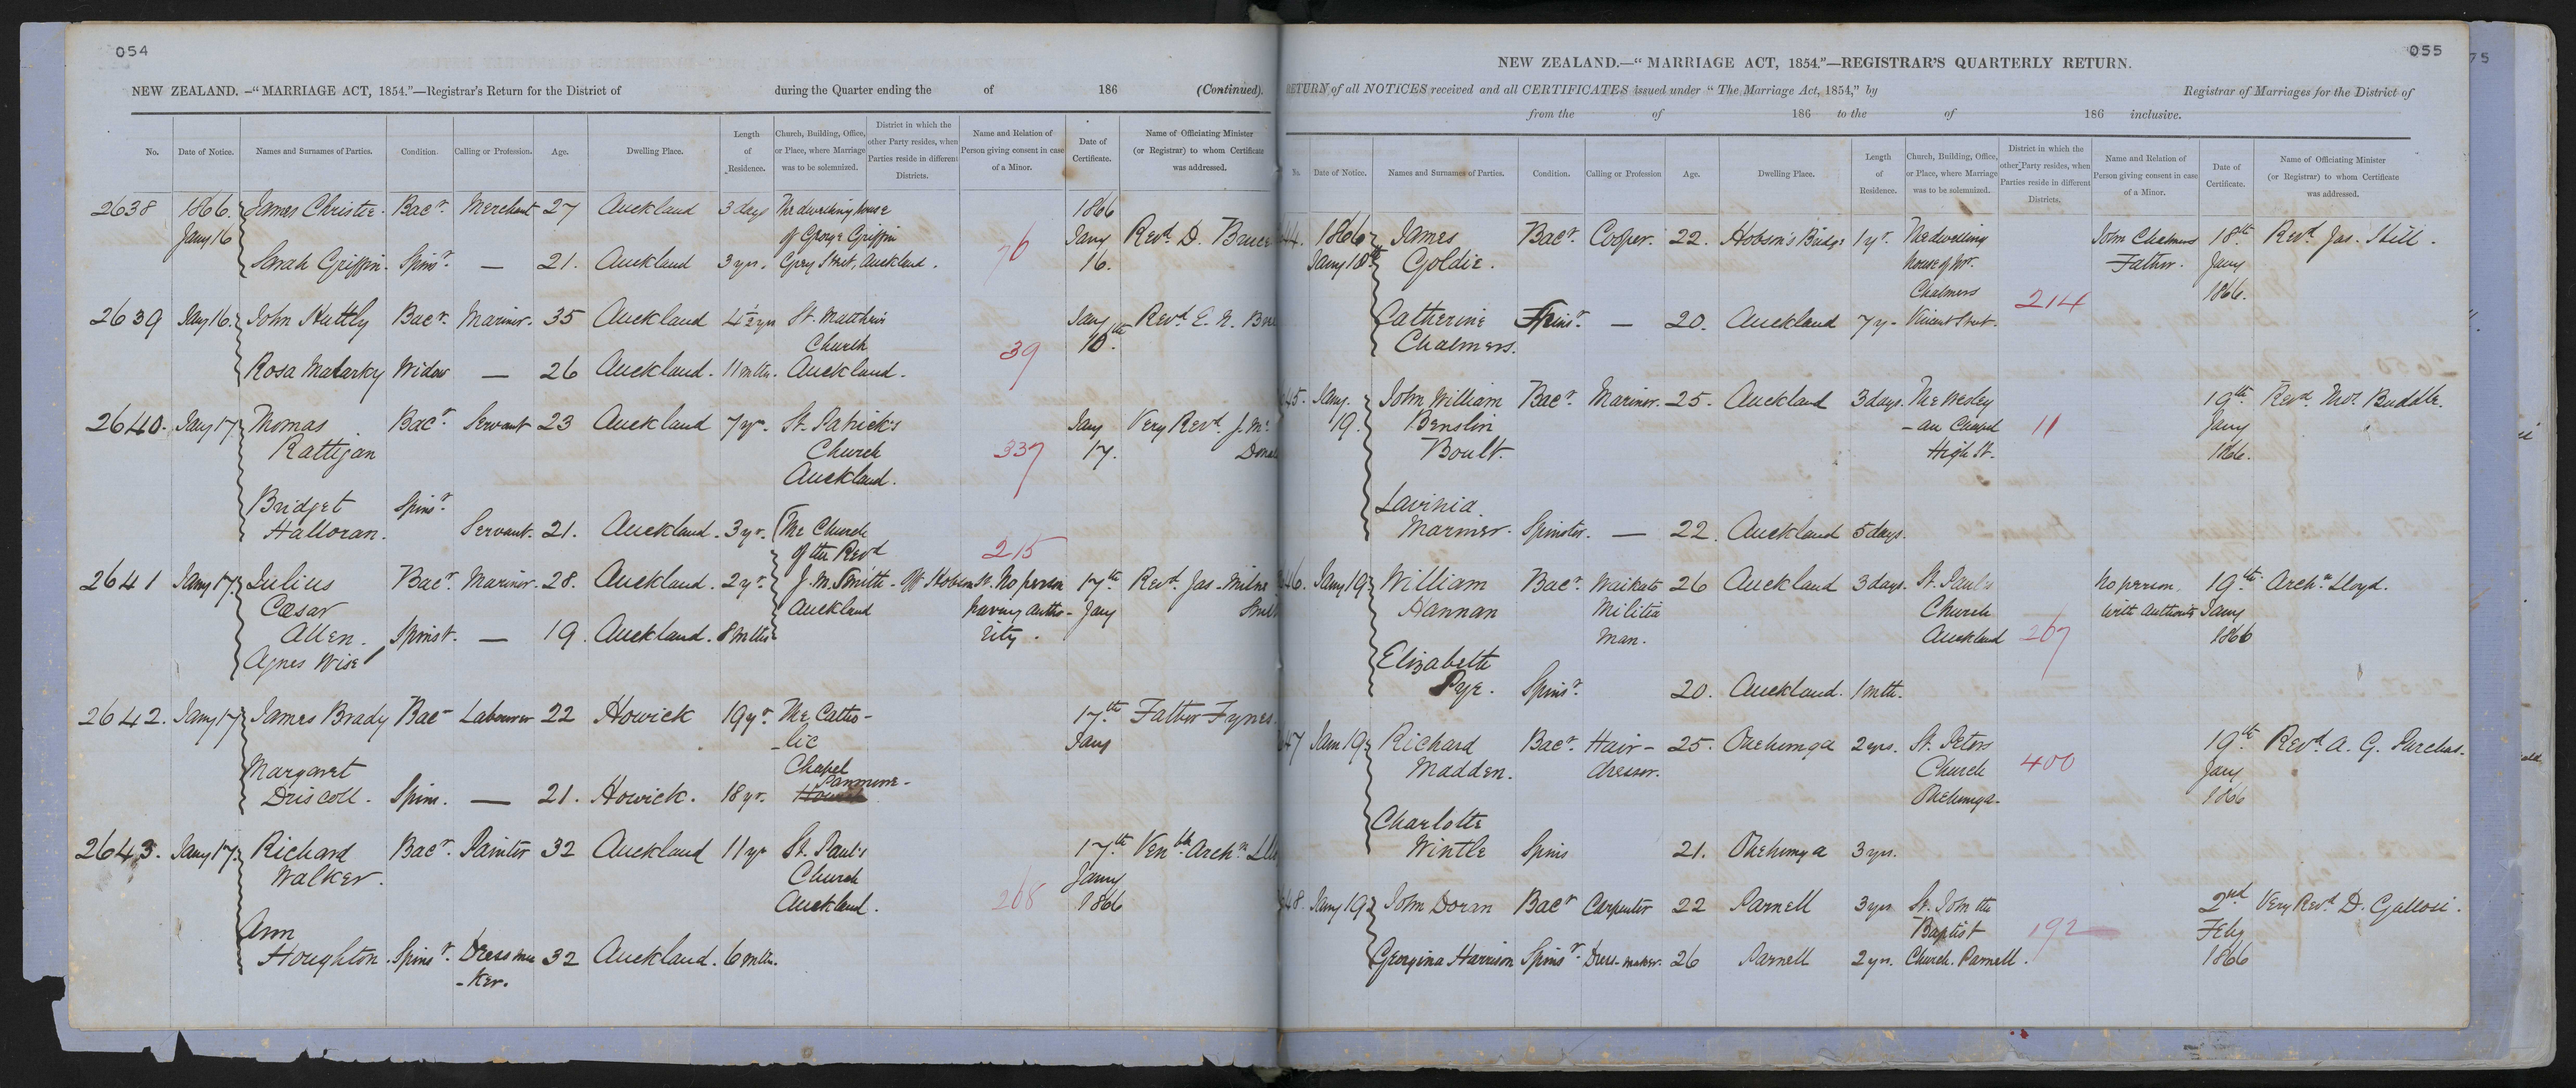 054
NEW ZEALAND.-"MARRIAGE ACT, 1854."—Registrar's Return for the District of during the Quarter ending the of 186 (Continued).
No. Date of Notice. Names and Surnames of Parties. Condition. Calling or Profession. Age. Dwelling Place. Length of Residence. Church, Building, Office, or Place, where Marriage was to be solemnized. District in which the other Party resides, when Parties reside in different Districts. Name and Relation of Person giving consent in case of a Minor. Date of Certificate. Name of Officiating Minister (or Registrar) to whom Certificate was addressed.
2638 1866. James Christie. Bacr. Merchant 27 Auckland 3 days The dwelling house 1866
Jany 16 of George Griffin 76 Jany Revd. D. Bruce
Sarah Griffin. Spinr. — 21. Auckland 3 yrs. Grey Street, Auckland. 16.
2639 Jany 16. John Huttly Bacr. Mariner. 35 Auckland 4½ yrs St. Matthew's Jany Revd. E. N.
Church 39 16th.
Rosa Malarky Widow — 26 Auckland. 11 mths. Auckland.
2640. Jany 17. Thomas Bacr. Servant 23 Auckland 7 yr. St. Patrick's Jany Very Revd. J. Mc
Rattigan Church 337 17.
Auckland.
Bridget Spinr.
Halloran. Servant. 21. Auckland. 3 yr. The Church
of the Revd 215
2641 Jany 17. Julius Bacr. Mariner. 28. Auckland. 2 yr. J. M. Smith - Off Hobson St. No person 17th Revd. Jas. Milne
Cæsar Auckland having autho- Jany
Allen. Spinst. — 19. Auckland. 8 mths rity.
Agnes Wise
2642. Jany 17 James Brady Bacr Labourer 22 Howick 19 yr. The Catho- 17th Father Fynes.
-lic Jany
Margaret Chapel
Driscoll. Spinr. — 21. Howick. 18 yr. Howick Panmure-
2643. Jany 17. Richard Bacr. Painter 32 Auckland 11 yr St. Paul's 17th Venble Archn.
Walker. Church Jany
Auckland. 268 1866
Ann
Houghton. Spinr. Dressma 32 Auckland. 6 mths.
-ker.
055
NEW ZEALAND.—"MARRIAGE ACT, 1854."—REGISTRAR'S QUARTERLY RETURN.
RETURN of all NOTICES received and all CERTIFICATES issued under "The Marriage Act, 1854," by Registrar of Marriages for the District of
from the of 186 to the of 186 inclusive.
No. Date of Notice. Names and Surnames of Parties. Condition. Calling or Profession Age. Dwelling Place. Length of Residence. Church, Building, Office, or Place, where Marriage was to be solemnized. District in which the other Party resides, when Parties reside in different Districts. Name and Relation of Person giving consent in case of a Minor. Date of Certificate. Name of Officiating Minister (or Registrar) to whom Certificate was addressed.
44. 1866 James Bacr. Cooper. 22. Hobson's Bridge 1 yr. The dwelling John Chalmers 18th Revd. Jas. Hill.
Jany 18th Goldie. house of Mr. Father. Jany
Chalmers 214 1866.
Catherine Spinr. — 20. Auckland 7 y. Vincent Street.
Chalmers.
45. Jany. John William Bacr. Mariner. 25. Auckland 3 days. The Wesley 19th Revd. Thos. Buddle.
19. Benslin -an Chapel 11 Jany
Boult. High St. 1866.
Lavinia
Marmer. Spinster. — 22. Auckland 5 days.
46. Jany 19. William Bacr. Waikato 26 Auckland 3 days. St. Paul's No person 19th Archn. Lloyd.
Hannan Militia Church with Authority Jany
Man. Auckland 267 1866
Elizabeth
Pye. Spinr. 20. Auckland. 1 mth.
47 Jany 19 Richard Bacr. Hair- 25. Onehunga 2 yrs. St. Peters 19th Revd. A. G. Purchas.
Madden. dresser. Church 400 Jany
Onehunga- 1866
Charlotte
Wintle Spins 21. Onehunga 3 yrs.
48. Jany 19 John Doran Bacr Carpenter 22 Parnell 3 yrs St. John the 2nd Very Revd. D. Gallosi.
Baptist 192 Feby
Georgina Harrison Spinr. Dress-maker. 26 Parnell 2 yrs. Church. Parnell. 1866
75